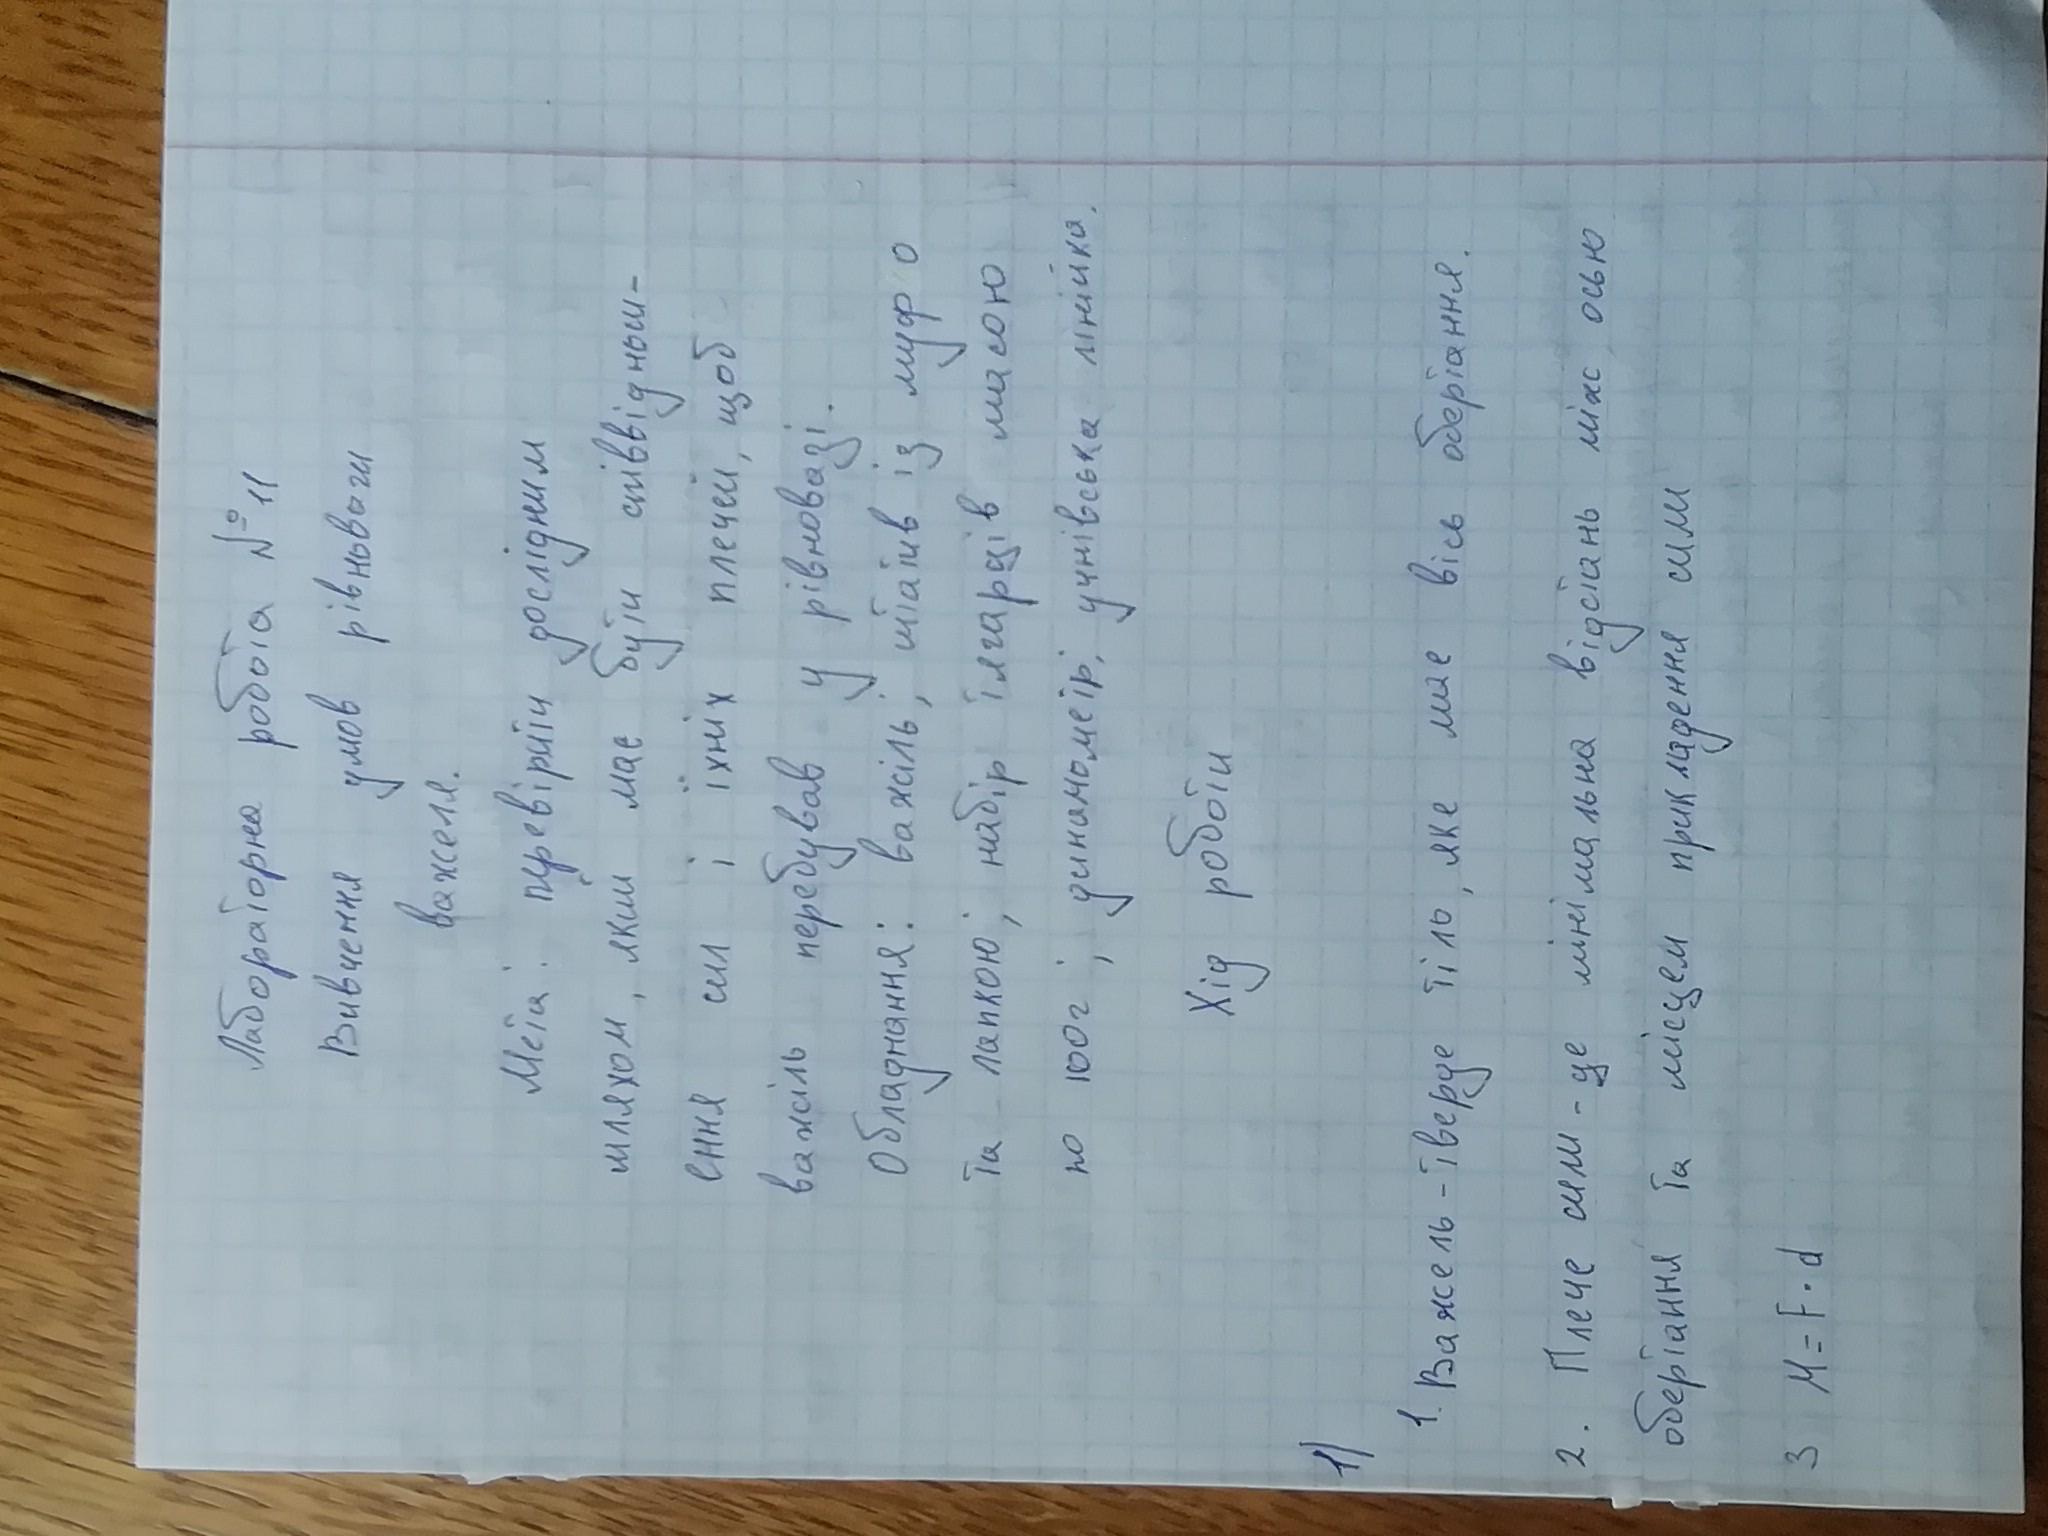 Лабораторна робота №11
Вивчення умов рівноваги
важеля.
Мета: перевірити дослідним
шляхом, яким має бути співвіднош-
ення сил і їхніх плечей, щоб
важіль перебував у рівновазі.
Обладнання: важіль, штатив із муфто
та лапкою, набір тягарців масою
по 100г; динамометр, учнівська лінійка.
Хід роботи
1)
1. Важель - тверде тіль, яке має вісь обертання.
2. Плече сили - це мінімальна відстань між осью
обертання та місцем прикладення сили
3 M = F · d